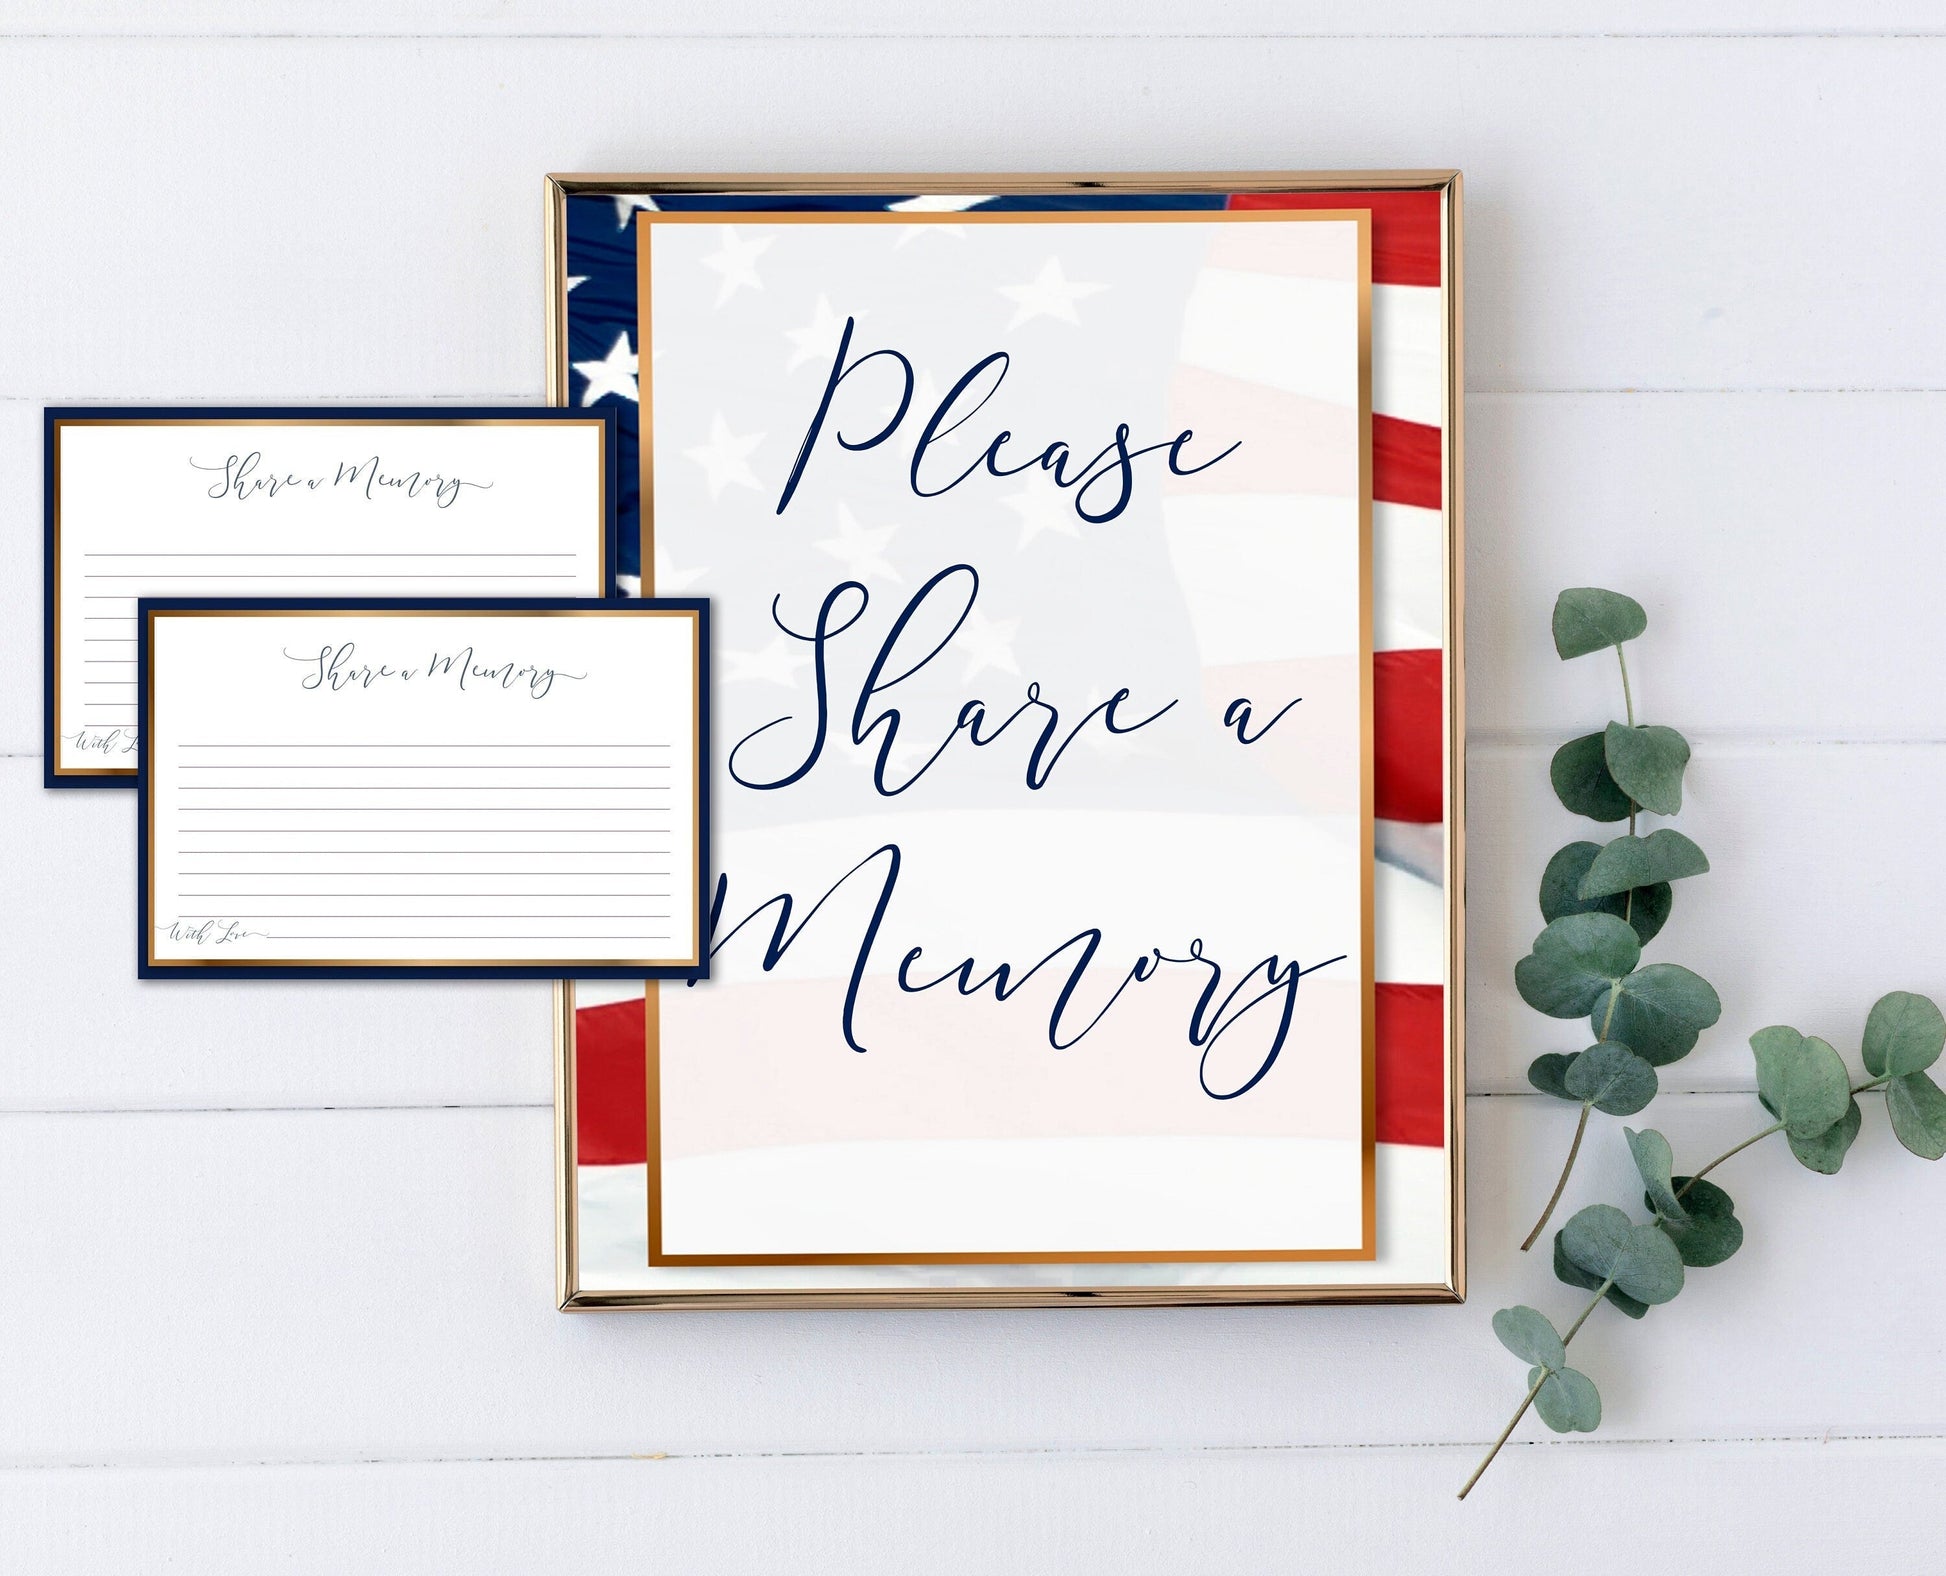 Please
Share a
Memory
Share a Memory
With L
Share a Memory
With Love